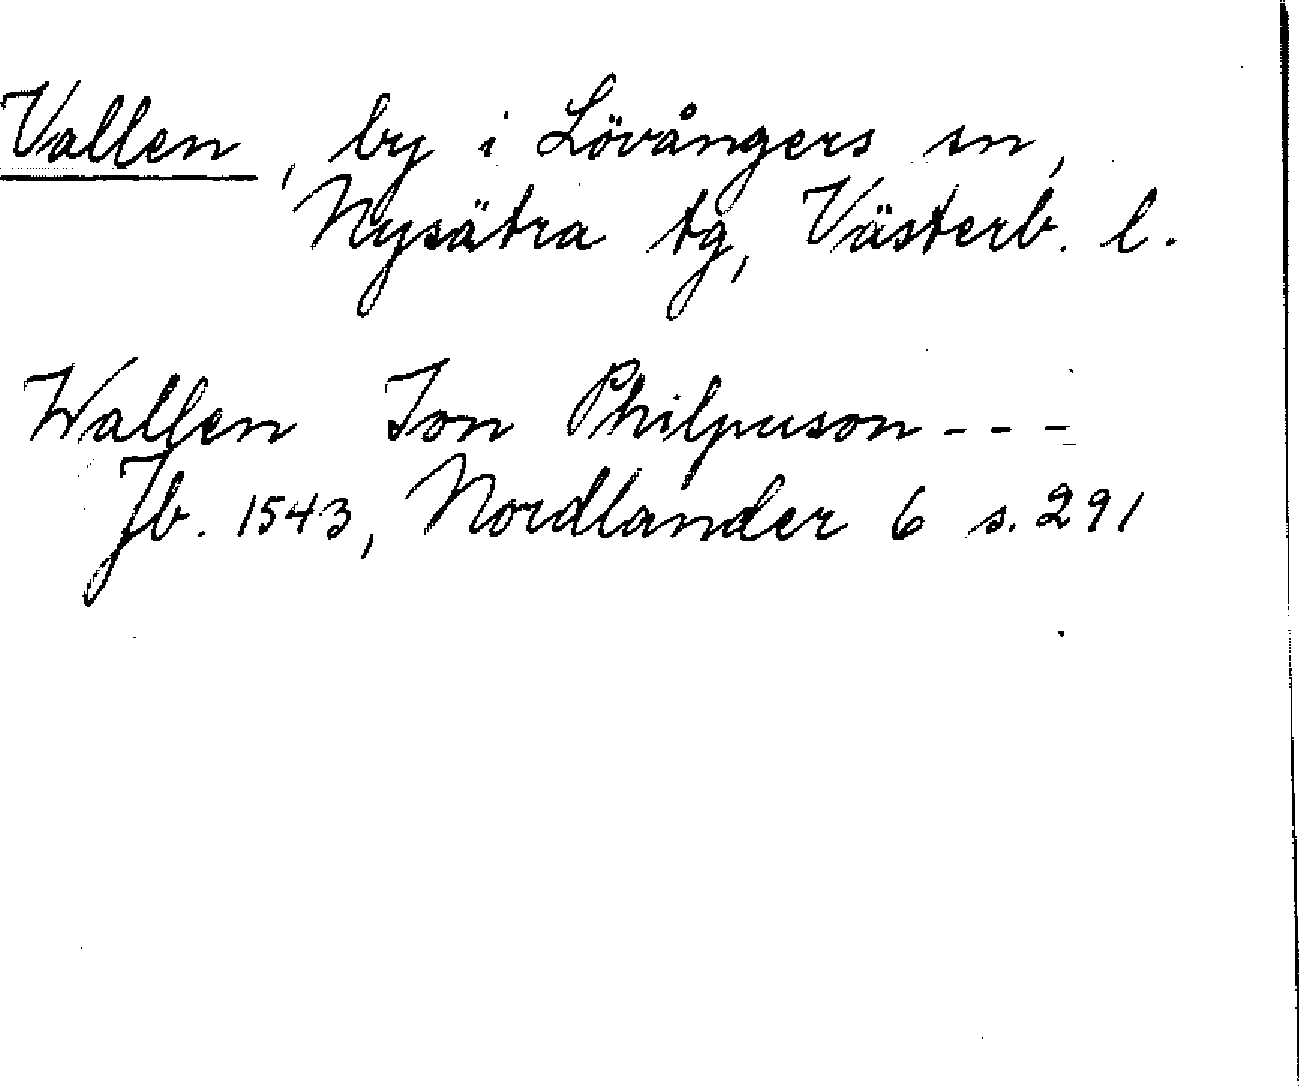 Vallen, by i Lövångers sn,
Nysätra tg, Västerb. l.
Wallen Jon Philpuson - - -
Jb. 1543, Nordlander 6 s. 291